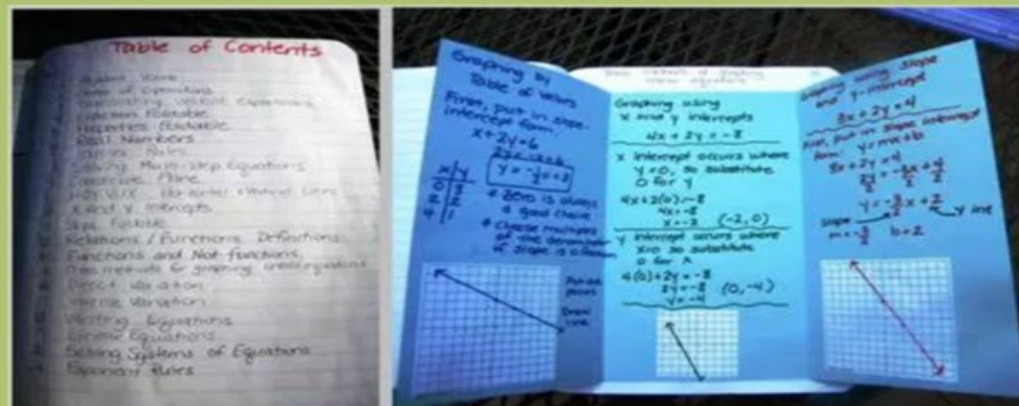 Table of Contents
Order of Operations
Translating Verbal Expressions
Function Foldable
Properties Foldable
Real Numbers
Rules
Solving Multi-step Equations
Coordinate Plane
Horizontal + Vertical Lines
X and Y Intercepts
Slope Foldable
Relations / Functions Definitions
Functions and Not Functions
Three methods for graphing linear equations
Direct Variation
Inverse Variation
Writing Equations
Linear Equations
Solving Systems of Equations
Exponent Rules
Graphing by
Table of Values
First, put in slope-
intercept form.
x + 2y = 6
y = -1/2x + 3
x y
0 3
2 2
4 1
* Zero is always
a good choice
* Choose multiples
of the denominator
if slope is a fraction
Plot
points
Draw
line
Three methods of graphing
linear equations
Graphing using
x and y intercepts
4x + 2y = -8
x intercept occurs where
y=0, so substitute
0 for y
4x + 2(0) = -8
4x = -8
x = -2 (-2, 0)
y intercept occurs where
x=0 so substitute
0 for x
4(0) + 2y = -8
2y = -8 (0, -4)
y = -4
Graphing using slope
and y-intercept
3x + 2y = 4
First, put in slope intercept
form. y = mx + b
3x + 2y = 4
2y/2 = -3x/2 + 4/2
y = -3/2x + 2
slope y int
m = -3/2 b = 2